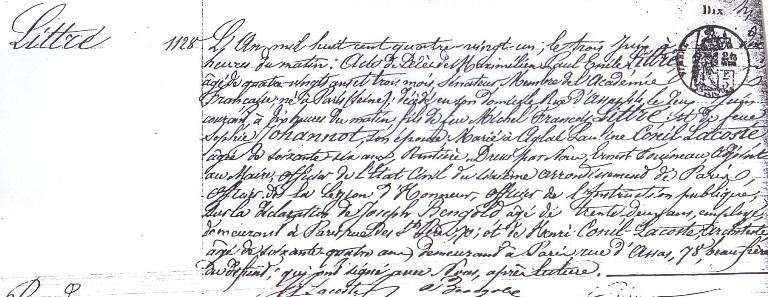 Dix
Littré
1128
L'An mil huit cent quatre-vingt-un, le trois Juin à
heures du matin: Acte de Décès de Maximilien Paul Emile Littré
âgé de quatre vingts ans et trois mois, Sénateur Membre de l'Académie
Française, né à Paris (Seine); décédé en son domicile Rue d'Assas, le deux Juin
courant, à heures du matin, fils de feu Michel François Littré et de feue
Sophie Johannot, son épouse Marié à Aglaé Pauline Conil Lacoste
âgée de soixante-six ans, Rentière. Dressé par Nous, Ernest Adjoint
au Maire, officier de l'Etat Civil du sixième arrondissement de Paris,
officier de la Légion d'Honneur, officier de l'Instruction publique,
sur la déclaration de Joseph âgé de trente deux ans, employé,
demeurant à Paris, rue des Sts Pères, et de Henri Conil-Lacoste Architecte
âgé de soixante-quatre ans demeurant à Paris rue d'Assas, 78, beau-frère
du défunt, qui ont signé avec Nous, après lecture.
Lacoste